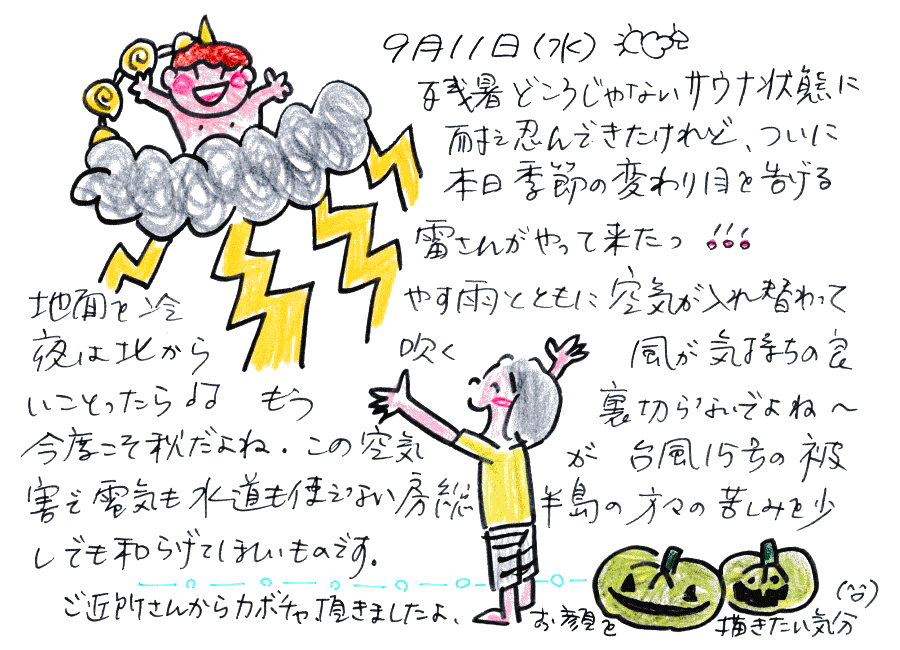 9月11日(水)
残暑どころじゃないサウナ状態に
耐え忍んできたけれど、ついに
本日季節の変わり目を告げる
雷さんがやって来たっ !!!
地面を冷やす雨とともに空気が入れ替わって
夜は北から吹く風が気持ちの良
いことったら♫ もう裏切らないでよね〜
今度こそ秋だよね。この空気が台風15号の被
害で電気も水道も使えない房総半島の方々の苦しみを少
しでも和らげてほしいものです。
ご近所さんからカボチャ頂きましたよ、お顔を描きたい気分